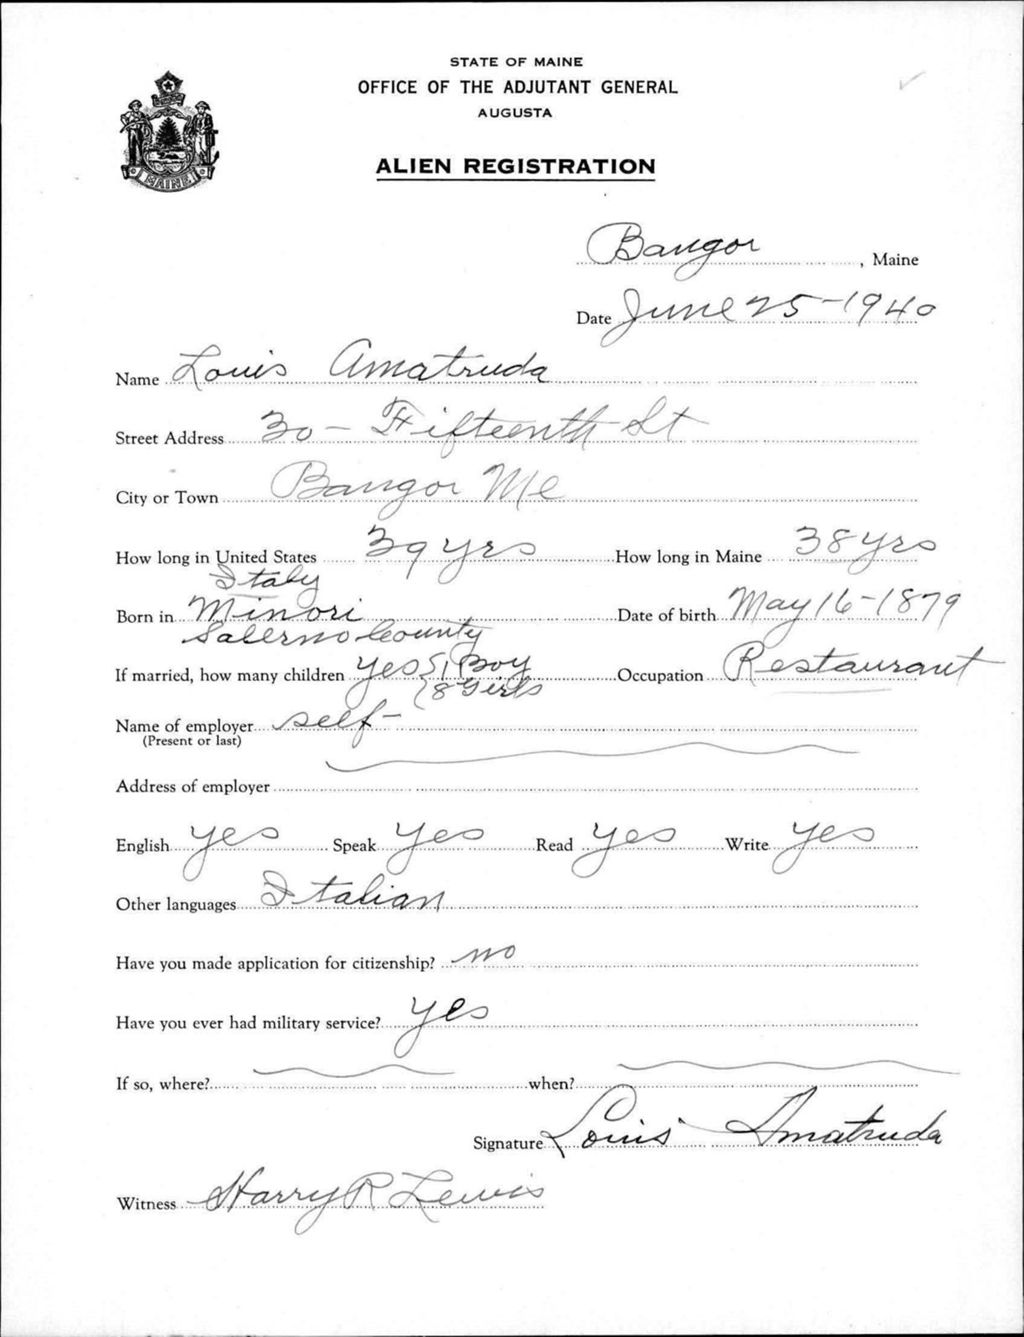 STATE OF MAINE
OFFICE OF THE ADJUTANT GENERAL
AUGUSTA
ALIEN REGISTRATION
MAINE
Bangor, Maine
Date June 25-1940
Name Louis Amatruda
Street Address 30 - Fifteenth St
City or Town Bangor Me
How long in United States 39 yrs How long in Maine 38 yrs
Italy
Born in Minori Date of birth May 16-1879
Salerno County
If married, how many children yes { 1 Boy Occupation Restaurant
8 Girls
Name of employer self-
(Present or last)
Address of employer
English yes Speak yes Read yes Write yes
Other languages Italian
Have you made application for citizenship? no
Have you ever had military service? yes
If so, where? when?
Signature Louis Amatruda
Witness Harry R Lewis